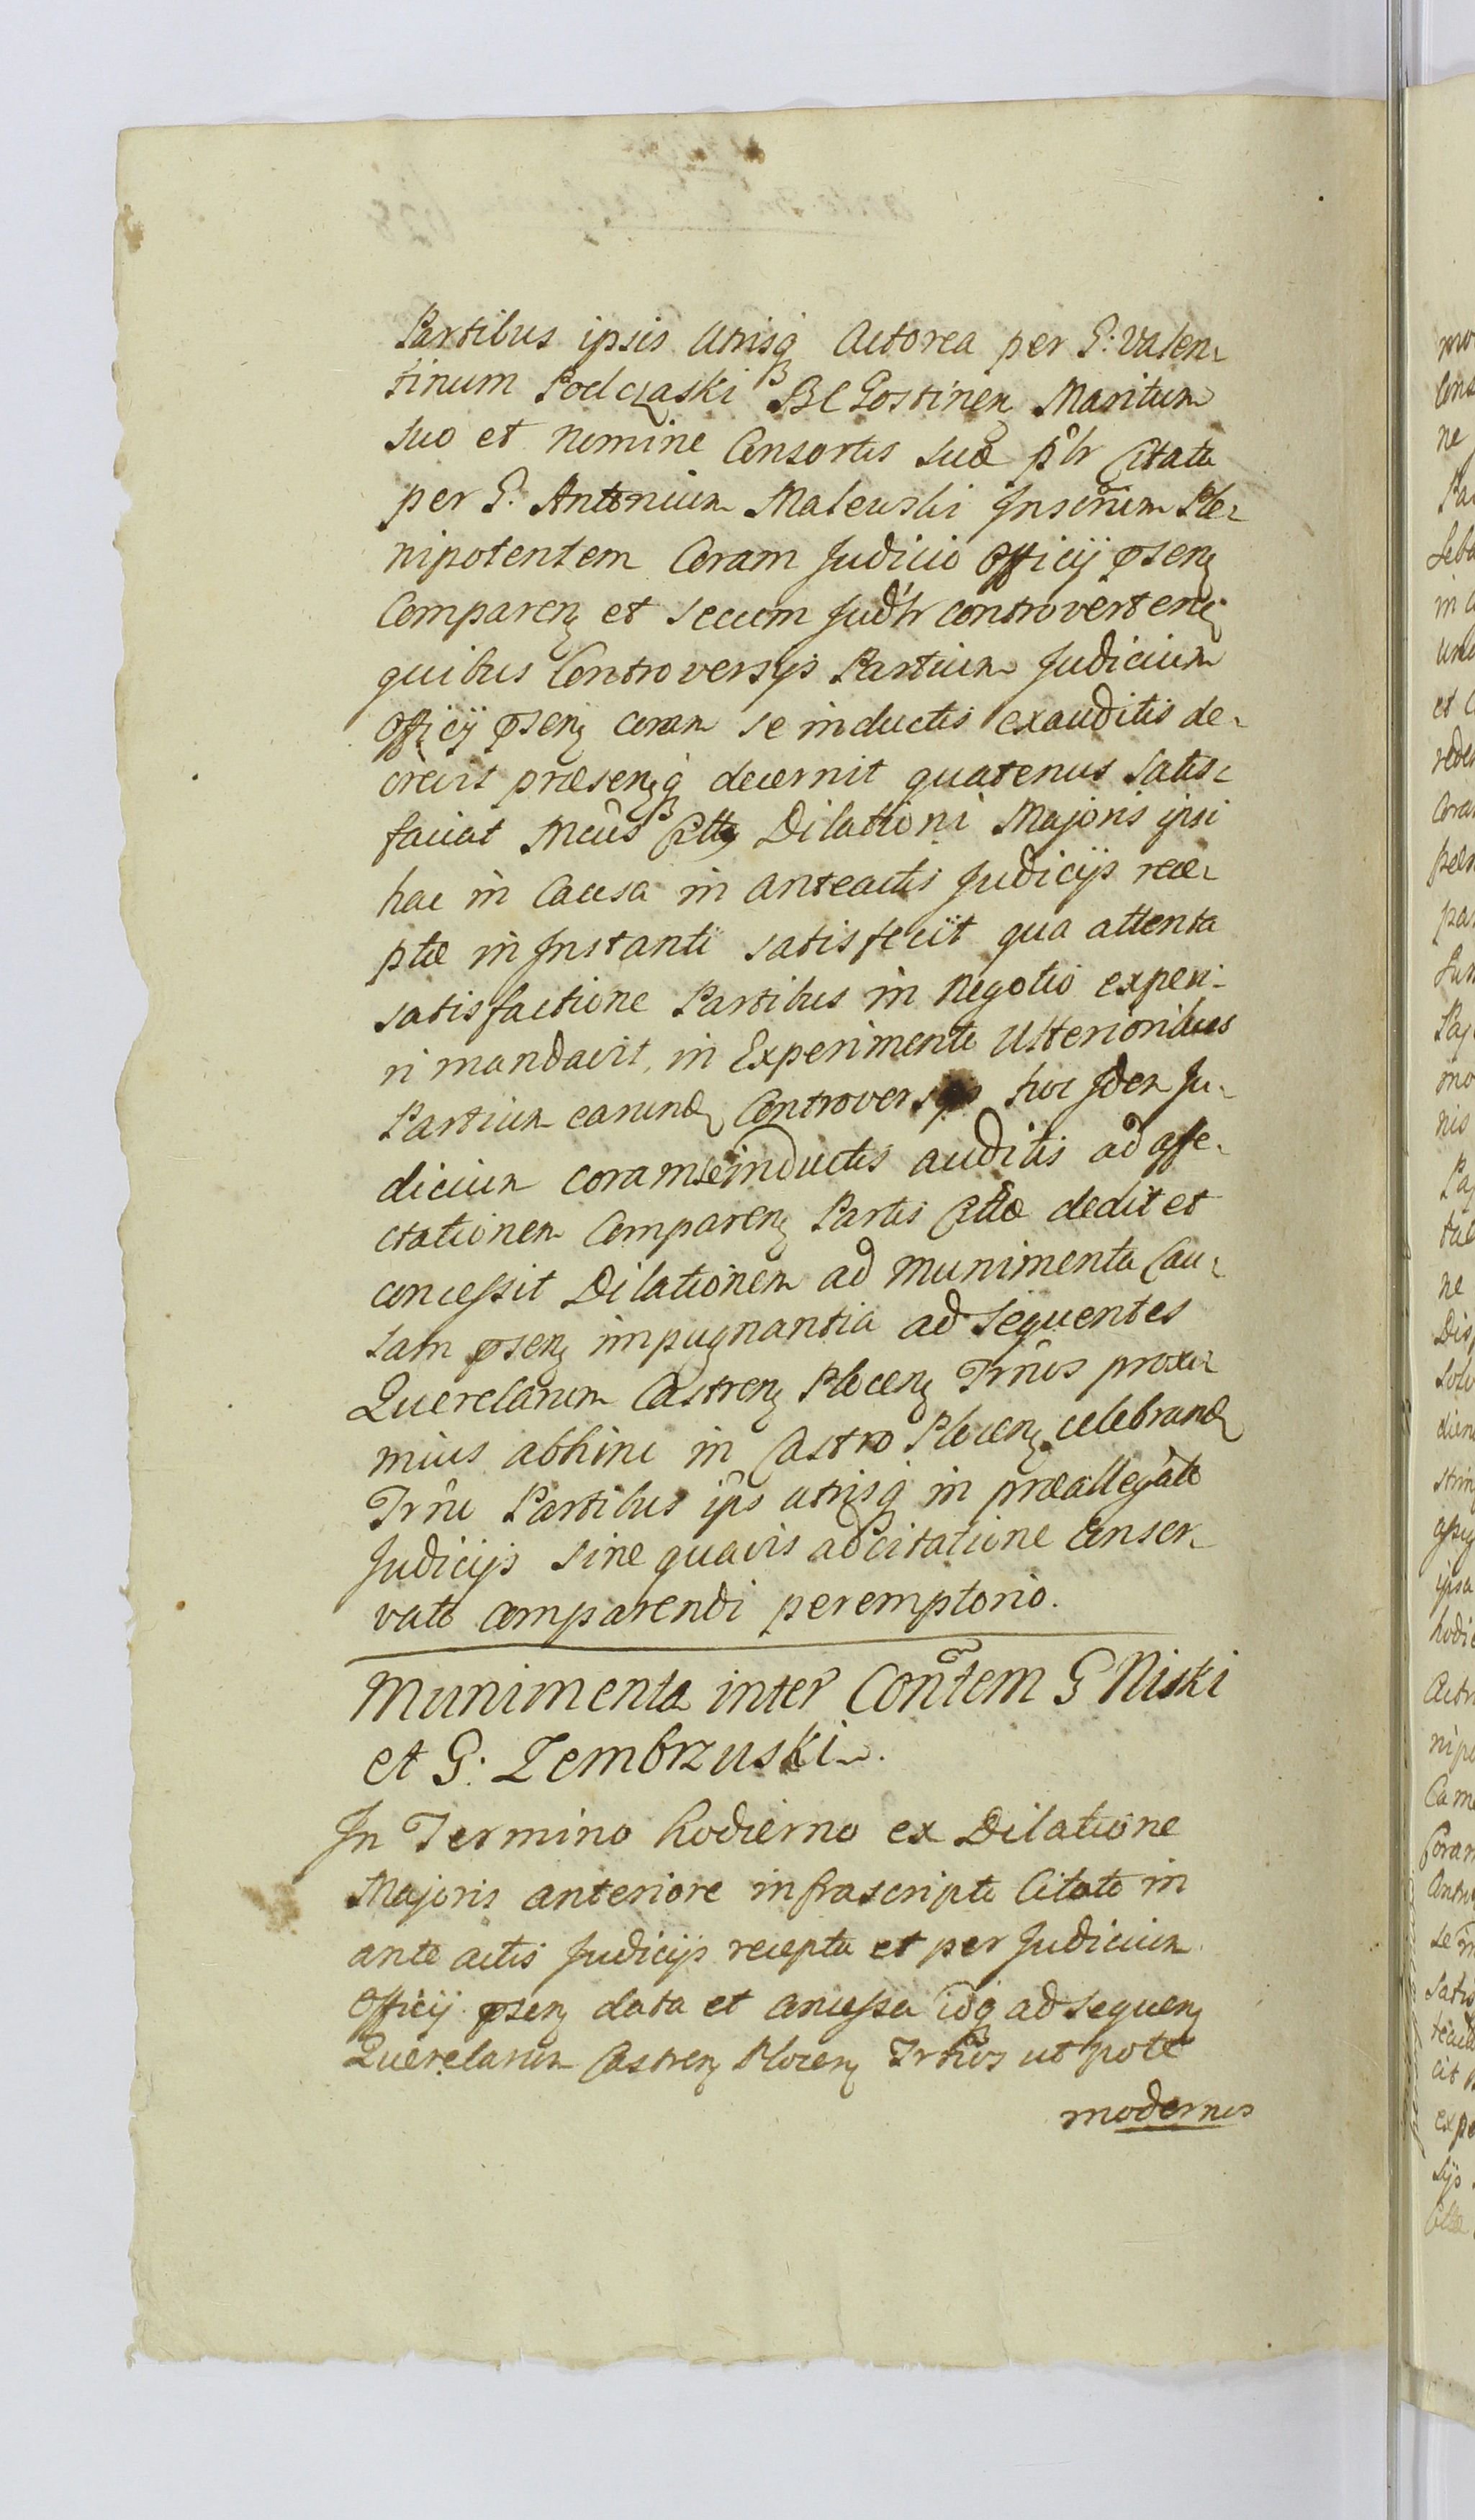 Partibus ipsis Utrisq Actorea per G: Valen-
tinum Podczaski BC Gostinen Maritum
suo et nomine Consortis suæ plr Citata
per G. Antonium Malewski Inscrium Ple-
nipotentem Coram Judicio Officij psen
Comparen et secum Judlr controverten
quibus Controversijs Partium Judicium
Officij psen coram se inductis exauditis de-
crevit præsenq decernit quatenus satis-
faciat Mcus Cittus Dilationi Majoris ipsi
hac in Causa in anteactis Judicijs rece-
ptæ in Instanti satisfecit qua attenta
satisfactione Partibus in Negotio experi-
ri mandavit, in Experimento Ulterioribus
Partium earund Controversijs hoc Idem Ju-
dicium coram se inductis auditis ad affe-
ctationem Comparen Partis Cittæ dedit et
concessit Dilationem ad munimenta Cau-
sam psen impugnantia ad sequentes
Querelarum Castren Plocen Trnos proxi-
mius abhinc in Castro Plocen celebrand
Trno Partibus ips utrisq in præallegato
Judicijs sine quavis adcitatione Conser-
vato comparendi peremptorio.
Munimenta inter Contem G Niski
et G: Zembrzuski.
In Termino hodierno ex Dilatione
Majoris anteriore infrascripto Citato in
ante actis Judicijs recepta et per Judicium
Officij psen data et concessa idq ad sequen
Querelarum Castren Plocen Trnos ut pote
modernos